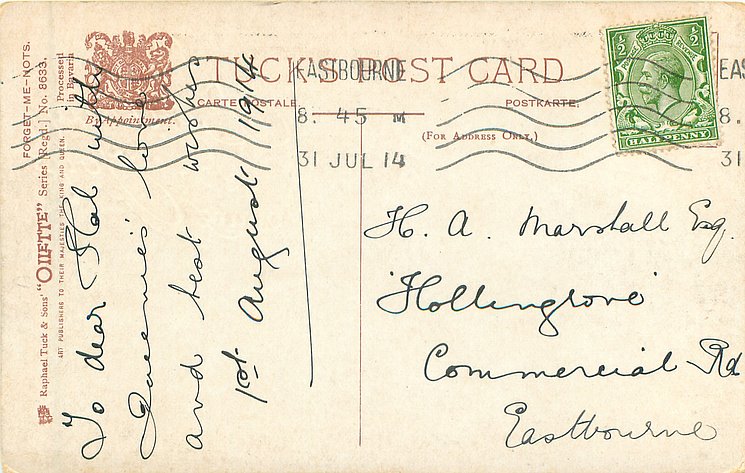 TUCK'S POST CARD
CARTE POSTALE.
POSTKARTE.
(FOR ADDRESS ONLY.)
By Appointment.
FORGET-ME-NOTS.
Raphael Tuck & Sons' "OILETTE" Series (Regd.) No. 8633.
ART PUBLISHERS TO THEIR MAJESTIES THE KING AND QUEEN.
Processed
in Bavaria
EASTBOURNE
8. 45 M
31 JUL 14
EAS
8.
31
1/2
1/2
POSTAGE
REVENUE
HALFPENNY
To dear Hal with
Queenie's love
and best wishes
1st August 1914
H. A. Marshall Esq.
'Hollingrove'
Commercial Rd
Eastbourne